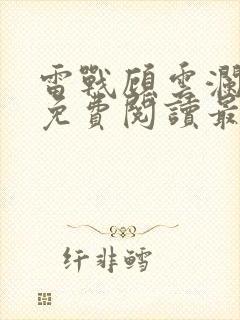 雷戰顧雲瀾
免費閱讀最
纤非鳕